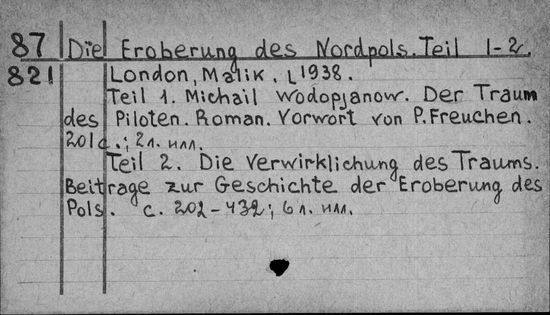 87 Die Eroberung des Nordpols. Teil 1-2.
821 London, Malik, 1938.
Teil 1. Michail Wodopjanow. Der Traum
des Piloten. Roman. Vorwort von P. Freuchen.
201 с.; 2 л. илл.
Teil 2. Die Verwirklichung des Traums.
Beitrage zur Geschichte der Eroberung des
Pols. с. 202-432; 6 л. илл.